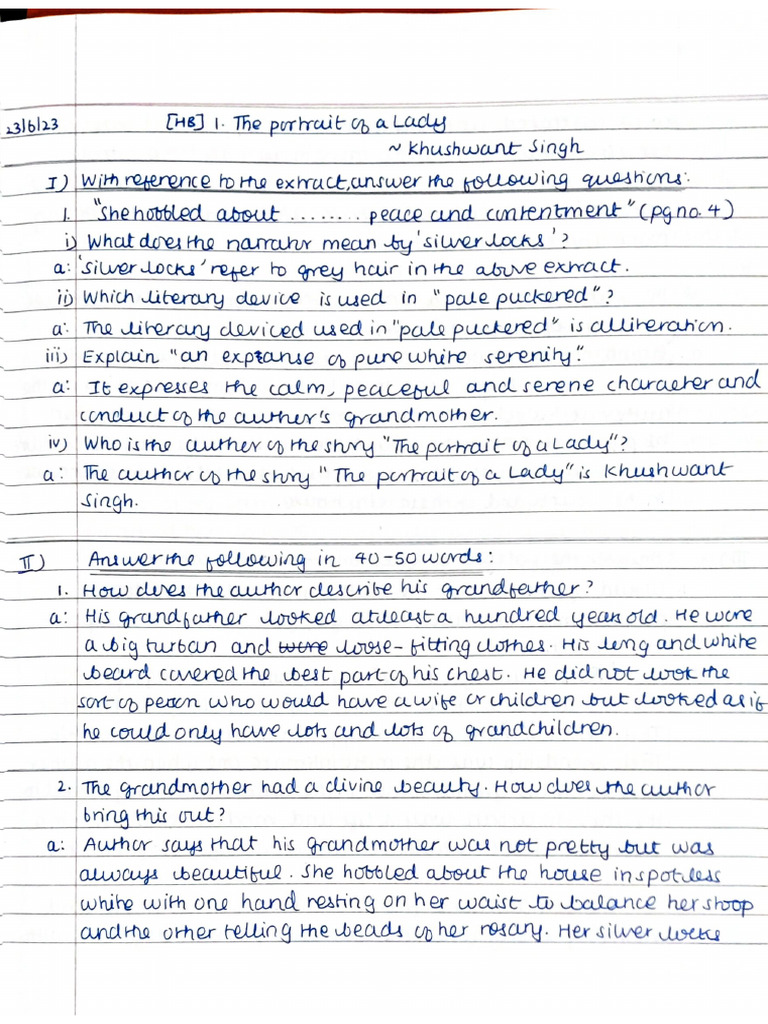 23/6/23 [HB] 1. The portrait of a Lady
~ Khushwant Singh
I) With reference to the extract, answer the following questions:
1. "She hobbled about ........ peace and contentment" (pg no. 4)
i) What does the narrator mean by 'silver locks'?
a: 'silver locks' refer to grey hair in the above extract.
ii) Which literary device is used in "pale puckered"?
a: The literary deviced used in "pale puckered" is alliteration.
iii) Explain "an expanse of pure white serenity".
a: It expresses the calm, peaceful and serene character and
conduct of the author's grandmother.
iv) Who is the author of the story "The portrait of a Lady"?
a: The author of the story "The portrait of a Lady" is Khushwant
Singh.
II) Answer the following in 40-50 words:
1. How does the author describe his grandfather?
a: His grandfather looked atleast a hundred years old. He wore
a big turban and were loose-fitting clothes. His long and white
beard covered the best part of his chest. He did not look the
sort of person who would have a wife or children but looked as if
he could only have lots and lots of grandchildren.
2. The grandmother had a divine beauty. How does the author
bring this out?
a: Author says that his grandmother was not pretty but was
always beautiful. She hobbled about the house in spotless
white with one hand resting on her waist to balance her stoop
and the other telling the beads of her rosary. Her silver locks